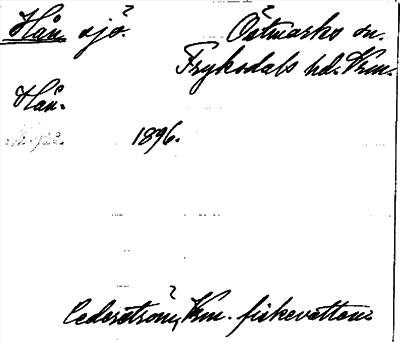 Hån sjö. Östmarks sn.
Fryksdals hd. Vrm.
Hån.
1896.
Cederström, Vrm. fiskevatten